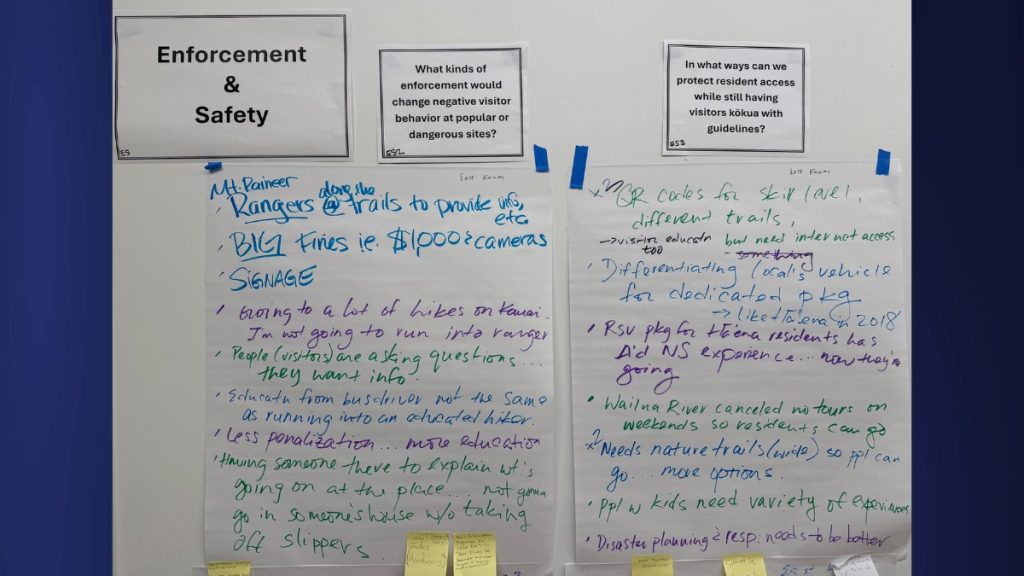 Enforcement
&
Safety
ES
What kinds of
enforcement would
change negative visitor
behavior at popular or
dangerous sites?
ES2
In what ways can we
protect resident access
while still having
visitors kōkua with
guidelines?
ES3
East Kauai
Mt. Raineer
along the
Rangers @ trails to provide info,
etc.
BIG Fines ie. $1,000 & cameras
SIGNAGE
Going to a lot of hikes on Kauai..
I'm not going to run into ranger
People (visitors) are asking questions...
they want info.
Educatn from busdriver not the same
as running into an educated hiker.
Less penalization... more education
Having someone there to explain wt's
going on at the place... not gonna
go in someone's house w/o taking
off slippers.
East Kauai
QR codes for skill level,
different trails,
→ visitor educatn but need internet access
too - something
Differentiating local's vehicle
for dedicated pkg
→ like Hā'ena in 2018
Rsv pkg for Hā'ena residents has
A'd NS experience... now they're
going
Wailua River canceled no tours on
weekends so residents can go
Needs nature trails (wide) so ppl can
go... more options.
Ppl w kids need variety of experiences
Disaster planning & resp. needs to be better